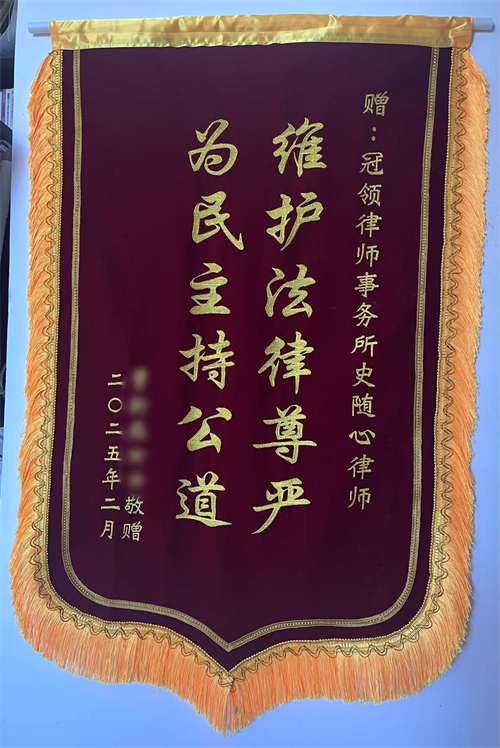 赠：冠领律师事务所史随心律师
维护法律尊严
为民主持公道
敬赠
二〇二五年二月